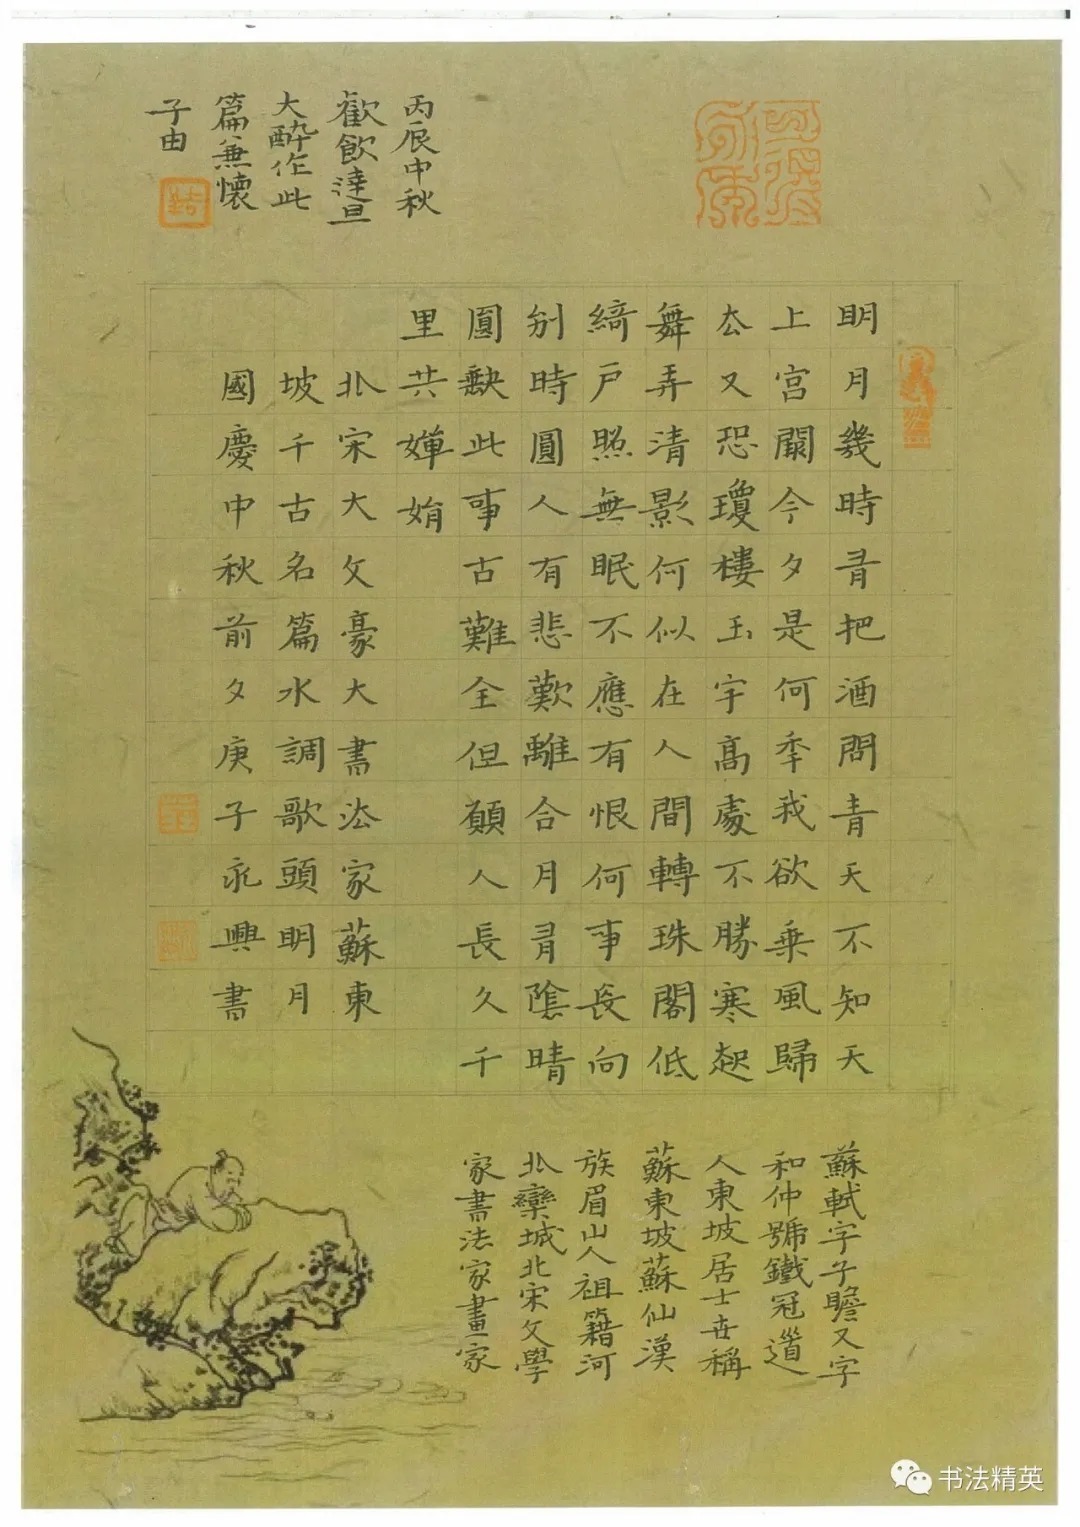 丙辰中秋
歡飲達旦
大醉作此
篇兼懷
子由
明月幾時有把酒問青天不知天
上宮闕今夕是何年我欲乘風歸
去又恐瓊樓玉宇高處不勝寒起
舞弄清影何似在人間轉珠閣低
綺戶照無眠不應有恨何事長向
别時圓人有悲歡離合月有陰晴
圓缺此事古難全但願人長久千
里共嬋娟
北宋大文豪大書法家蘇東
坡千古名篇水調歌頭明月
國慶中秋前夕庚子永興書
蘇軾字子瞻又字
和仲號鐵冠道
人東坡居士世稱
蘇東坡蘇仙漢
族眉山人祖籍河
北欒城北宋文學
家書法家畫家
书法精英